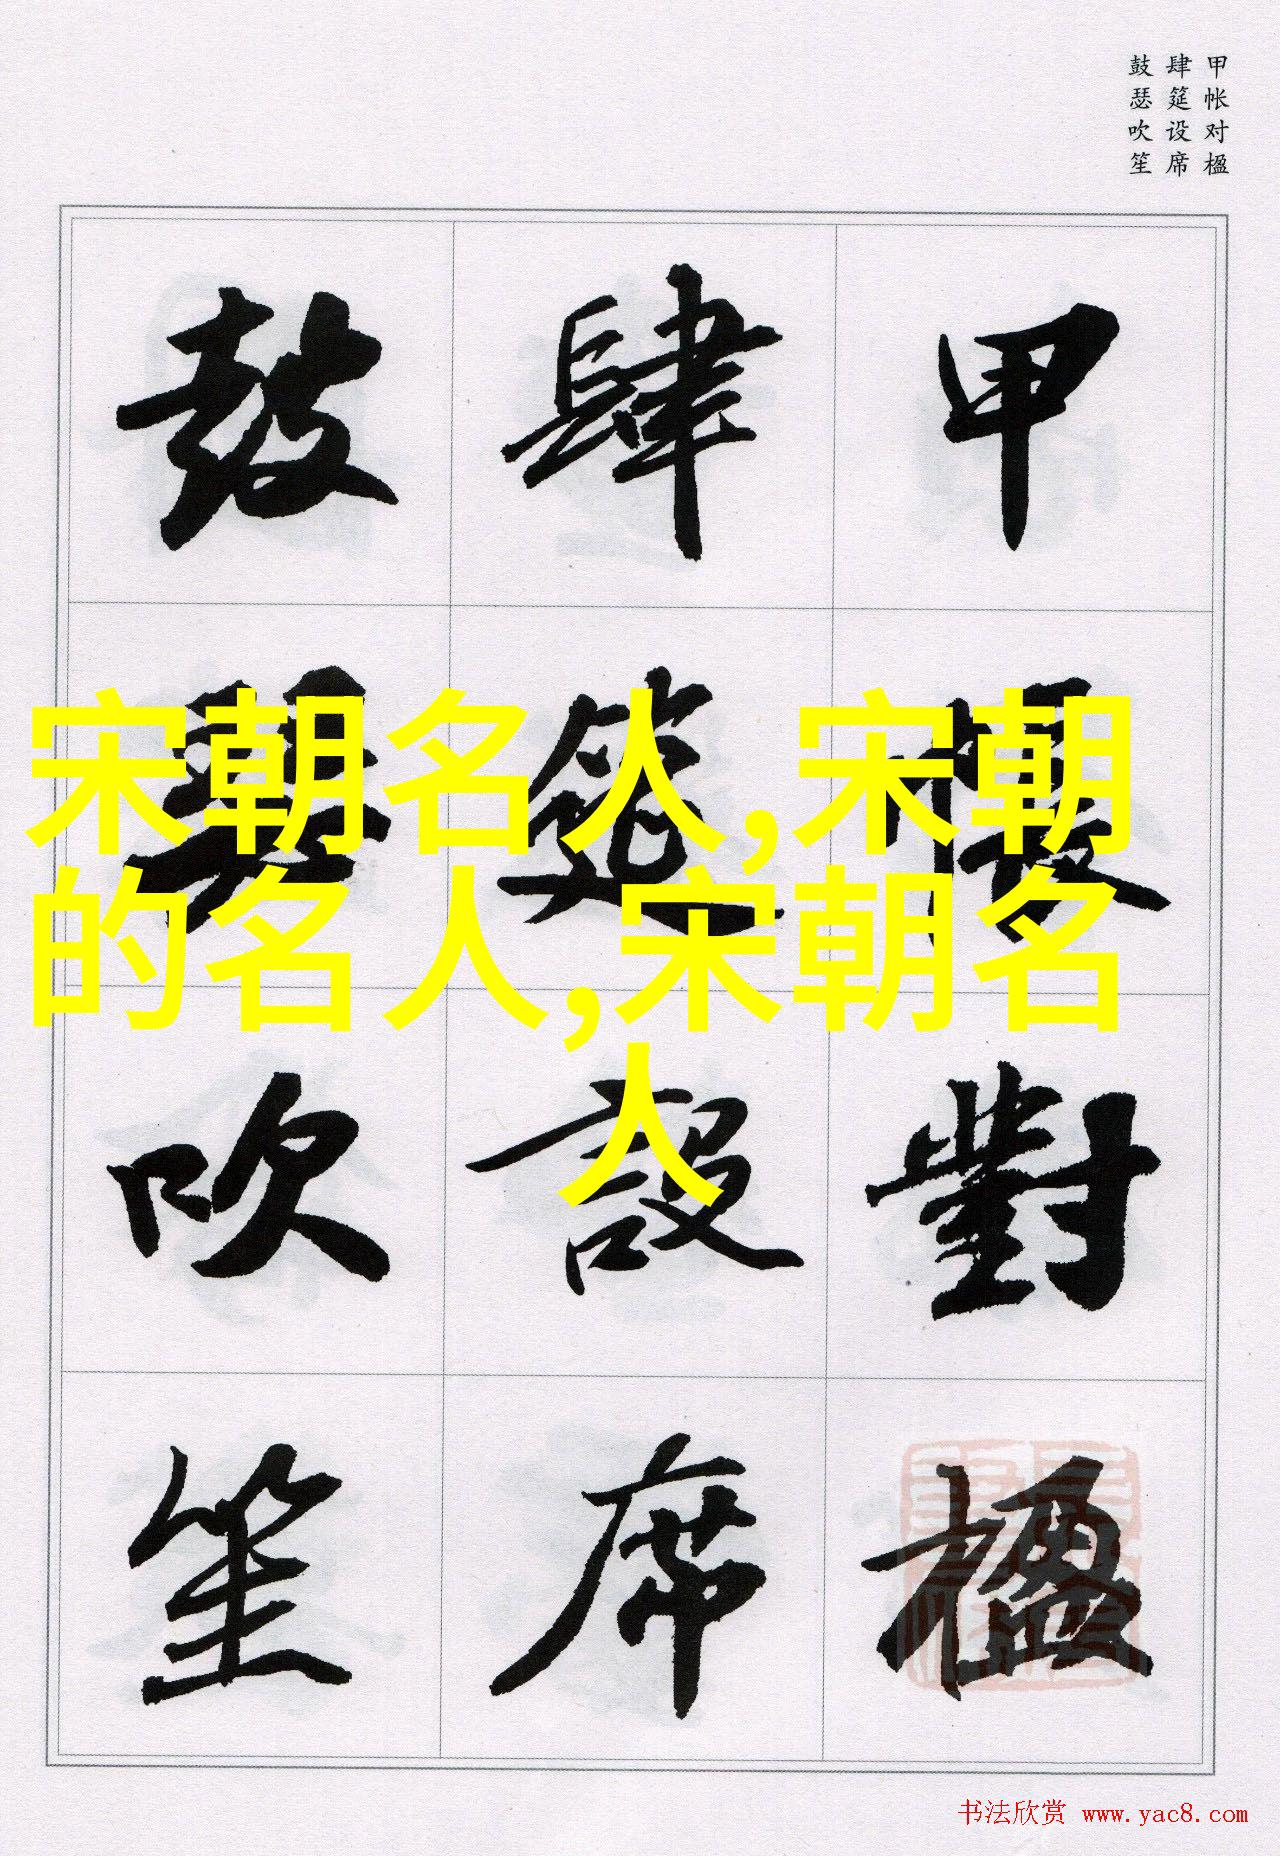 甲帐对楹
肆筵设席
鼓瑟吹笙
甲帳對楹
肆筵設席
鼓瑟吹笙
宋朝名人,宋朝
的名人,宋朝名
人
书法欣赏 www.yac8.com